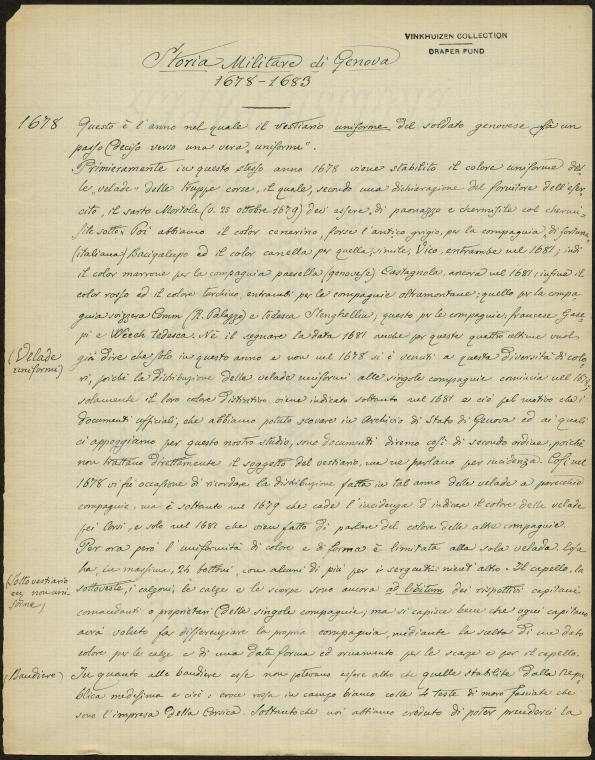 VINKHUIZEN COLLECTION
DRAPER FUND
Storia Militare di Genova
1678-1683
1678 Questo è l'anno nel quale il vestiario uniforme del soldato genovese fa un
passo deciso verso una vera "uniforme".
Primieramente in questo stesso anno 1678 viene stabilito il colore uniforme del-
le "velade" delle truppe corse, il quale, secondo una dichiarazione del fornitore dell'eser-
cito, il sarto Mortola (v. 25 ottobre 1679) devi essere, di paonazzo e chermisile col chermi-
sile sotto. Poi abbiamo il color cenerino, forse l'antico grigio, per la compagnia, di fortuna
(italiana) Bacigalupo ed il color canella per quella, simile, Vico, entrambe nel 1681; indi
il color marrone per la compagnia paesella (genovese) Castagnola, ancora nel 1681; infine il
color rosso ed il colore turchino, entrambi per le compagnie oltramontane: quello per la compa-
gnia svizzera Comm (R. Palazzo) e tedesca Stenghellin; questo per le compagnie francese
e tedesca. Nè il segnare la data 1681 anche per queste quattro ultime vuol
già dire che solo in questo anno e non nel 1678 si è venuti a questa diversità di colo-
ri, poichè la distribuzione delle velade uniformi alle singole compagnie comincia nel
solamente il loro colore distintivo viene indicato soltanto nel 1681 e ciò pel motivo che i
documenti ufficiali, che abbiamo potuto scovare in Archivio di Stato di Genova ed ai quali
ci appoggiamo per questo nostro studio, sono documenti diremo così di secondo ordine, poichè
non trattano direttamente il soggetto del vestiario, ma ne parlano per incidenza. Così nel
1678 vi fu occasione di ricordare la distribuzione fatta in tal anno delle velade a parecchie
compagnie, ma è soltanto nel 1679 che cade l'incidenza d'indicare il colore delle velade
pei Corsi, e solo nel 1681 che vien fatto di parlare del colore delle altre compagnie.
(Velade
uniformi)
Per ora però l'uniformità di colore e di forma è limitata alla sola velada. Essa
ha, in massima, 24 bottoni, con alcuni di più per i sergenti: nient'altro. Il capello, la
sottoveste, i calzoni, le calze e le scarpe sono ancora ad libitum dei rispettivi capitani
comandanti o proprietari delle singole compagnie; ma si capisce bene che ogni capitano
avrà voluto far differenziare la propria compagnia, mediante la scelta di un dato
colore per le calze e di una data forma ed ornamento per le scarpe e per il capello.
(Sottovestiario
non uni-
forme)
(Bandiere) In quanto alle bandiere esse non potevano essere altro che quelle stabilite dalla Repub-
blica medesima e cioè: croce rossa in campo bianco colle 4 teste di moro fasciate che
sono l'impresa della Corsica. Soltanto che noi abbiamo creduto di poter prenderci la